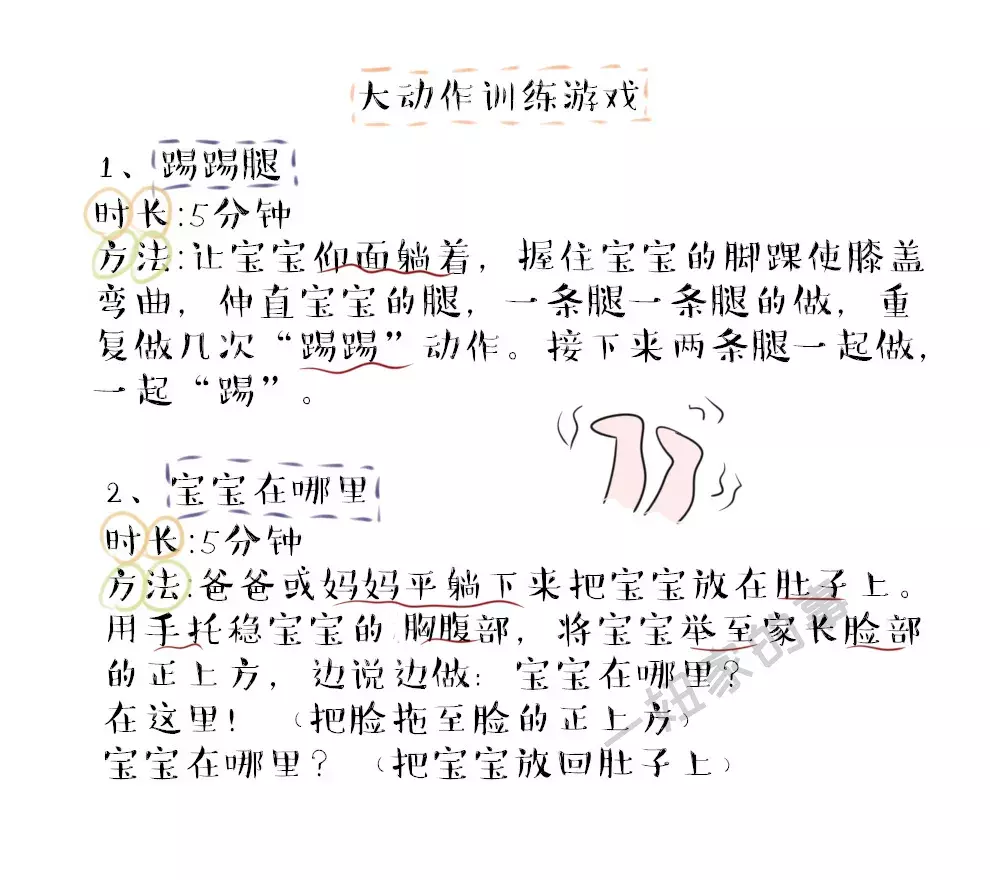 大动作训练游戏
1、踢踢腿
时长:5分钟
方法:让宝宝仰面躺着，握住宝宝的脚踝使膝盖
弯曲，伸直宝宝的腿，一条腿一条腿的做，重
复做几次“踢踢”动作。接下来两条腿一起做，
一起“踢”。
2、宝宝在哪里
时长:5分钟
方法:爸爸或妈妈平躺下来把宝宝放在肚子上。
用手托稳宝宝的胸腹部，将宝宝举至家长脸部
的正上方，边说边做：宝宝在哪里？
在这里！（把脸拖至脸的正上方）
宝宝在哪里？（把宝宝放回肚子上）
一妞家的事